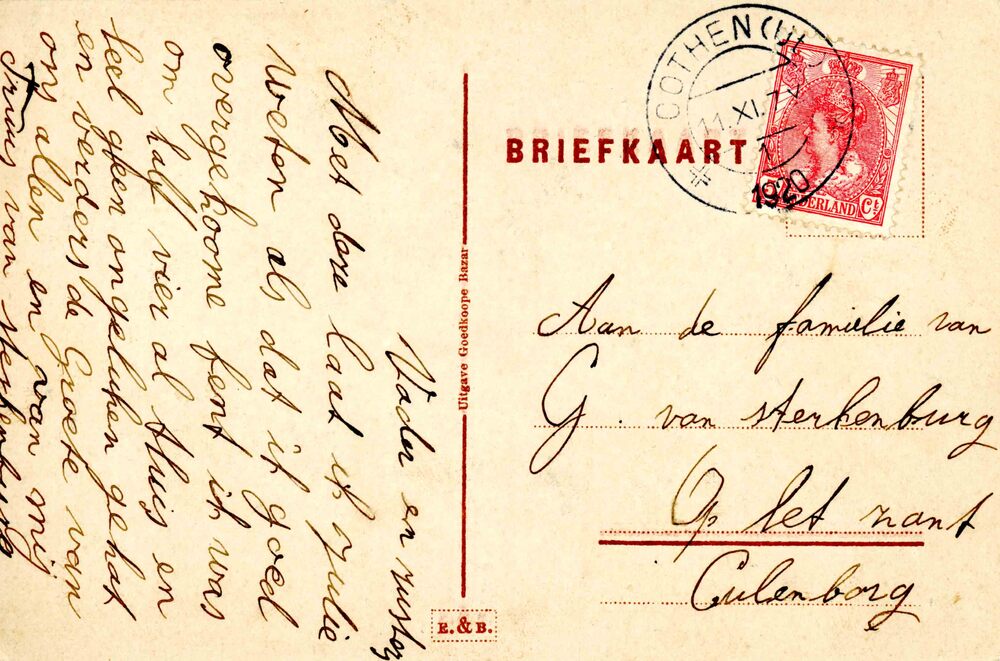 Vader en zuster
Met deze laat ik zulie
weten als dat ik goed
overgekoome bent ik was
om half vier al thuis en
heel geen ongelukken gehat
en verders de Groete van
ons allen en van mij
Truus van sterkenburg
Uitgave Goedkoope Bazar
E. & B.
BRIEFKAART
COTHEN (Ut.)
11.XI.
1920
NEDERLAND
Ct.
Aan de familie van
G. van sterkenburg
Op het zant
Culenborg